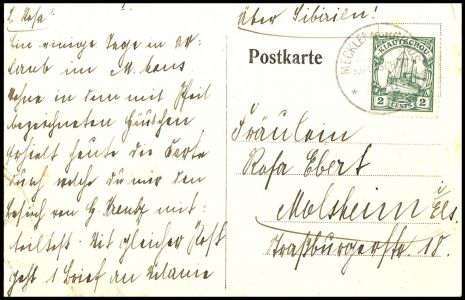 L. Rosa!
Bin einige Tage in Ur-
laub im M. haus
wohne in dem mit Pfeil
bezeichneten Häuschen
Erhielt heute die Karte
durch welche du mir den
Besuch von H. mit-
teiltest. Mit gleicher Post
geht 1 Brief an Mama
Über Sibirien!
Postkarte
MECKLENBURG
KIAUTSCHOU
2 CENTS 2
Fräulein
Rosa Ebert
Molsheim i/Els
Straßburgerstr 18.